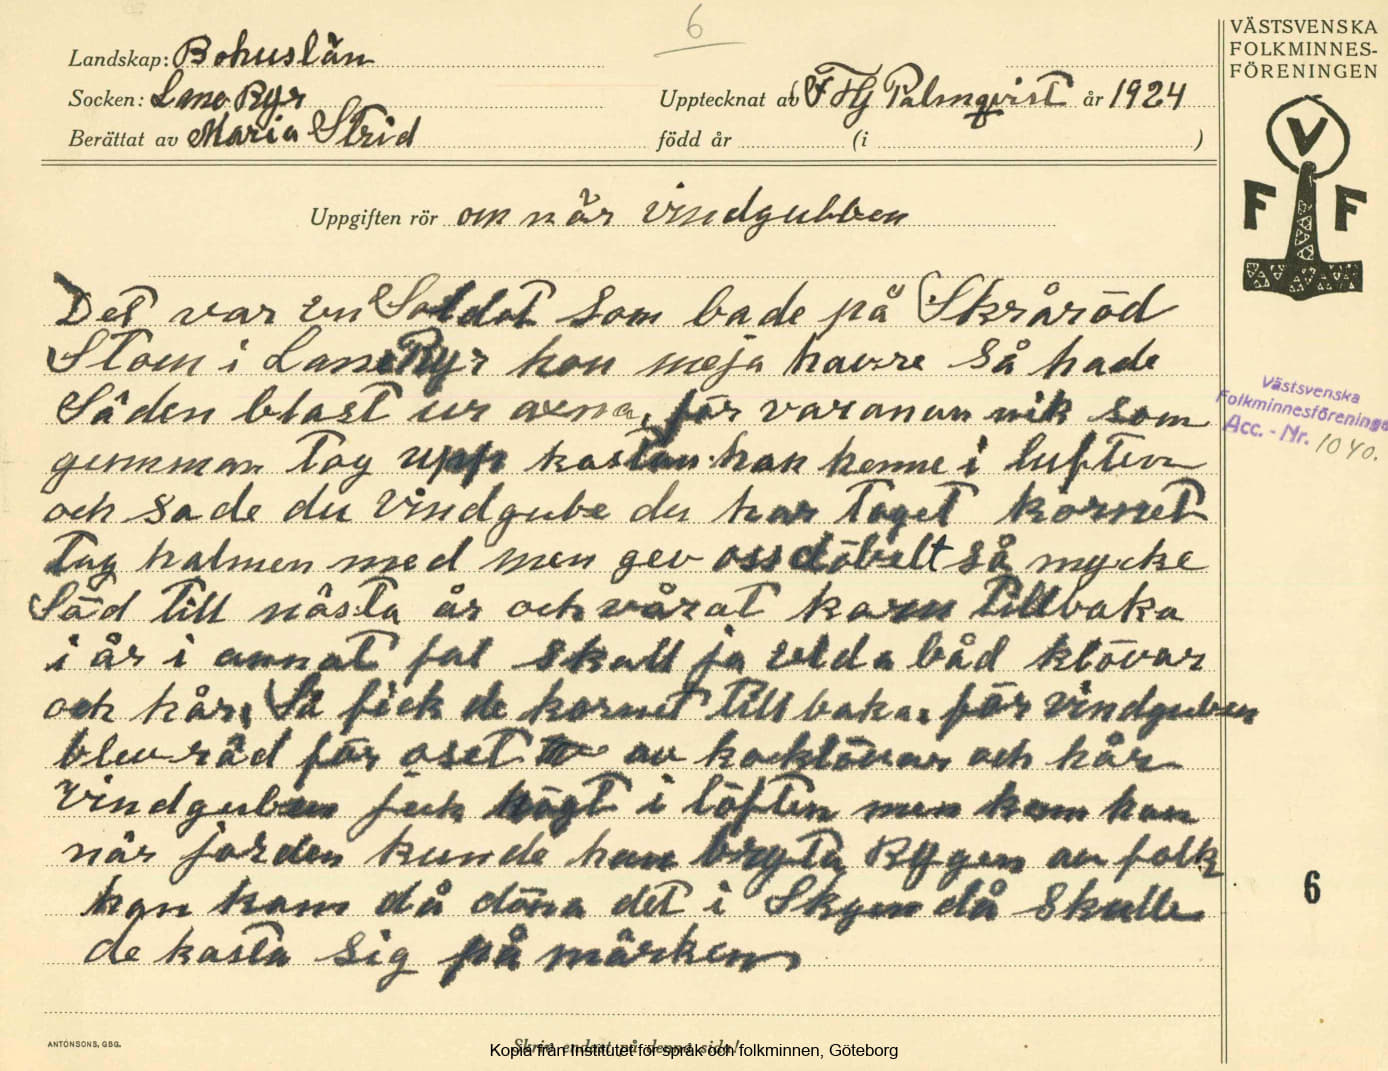 6
Landskap: Bohuslän
Socken: Lane Ryr
Berättat av Maria Strid
Upptecknat av F Hj Palmqvist år 1924
född år (i )
VÄSTSVENSKA
FOLKMINNES-
FÖRENINGEN
V
F F
Uppgiften rör om när vindgubben
Det var en Soldat som bade på Skråröd
Stom i Lane Ryr hon meja havre så hade
Säden blast ur axna, för varanan nik som
gumman tog upp kastau han henne i luften
och sade du Vindgube du har taget kornet
tag halmen med men gev oss döbelt så mycke
Säd till nästa år och vårat korn tillbaka
i år i annat fal skall ja elda båd klövar
och hår, Så fick de kornet till baka, för vindguben
blev räd för oset av koklövar och hår
Vindguben fick högt i löften men kom han
när jorden kunde han bryta Rygen av folk
han kom då döna det i Skyen då skulle
de kasta sig på märken
Västsvenska
Folkminnesförening
Acc. - Nr. 1040.
6
ANTONSONS, GBG.
Skriv endast på denna sida!
Kopia från Institutet för språk och folkminnen, Göteborg